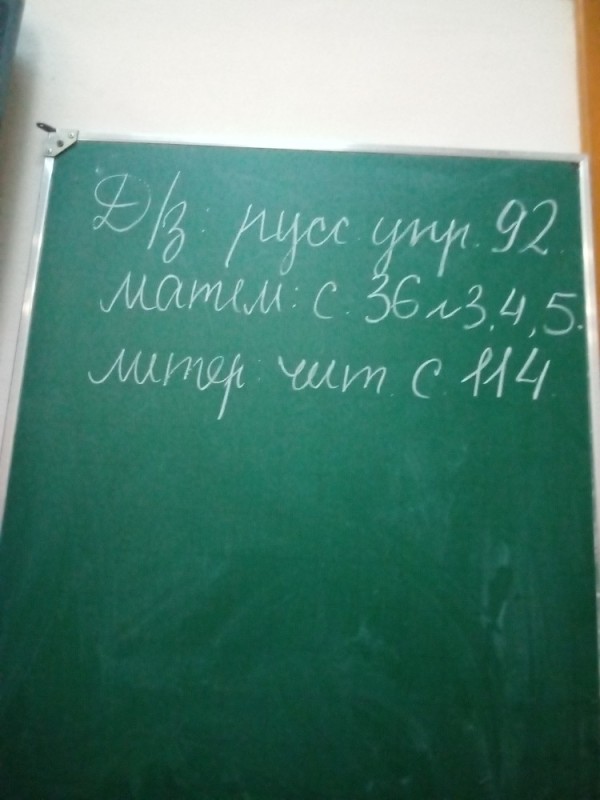 Д/з: русс. упр. 92.
матем: с. 36 №3,4,5.
литер: чит. с. 114